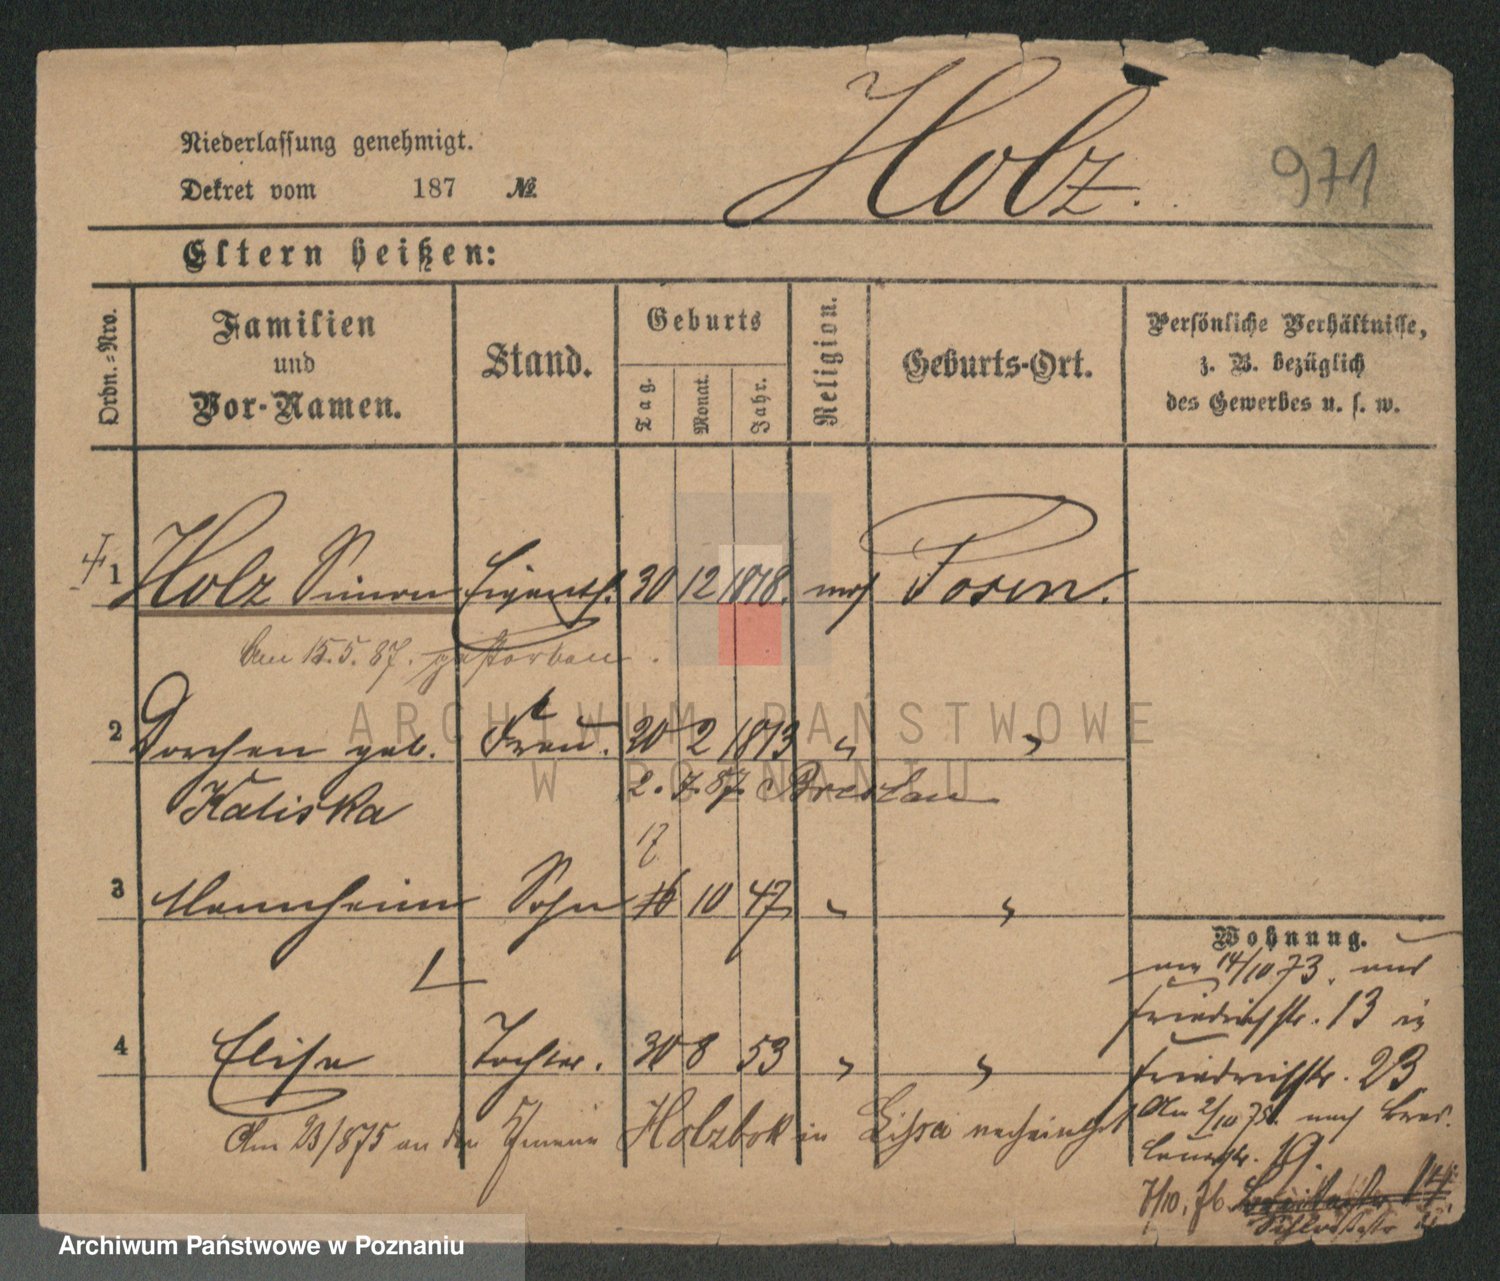 Holz.
971
Niederlassung genehmigt.
Dekret vom 187 №
Eltern heißen:
Ordn.=Nro.
Familien und Vor-Namen.
Stand.
Geburts
Tag.
Monat.
Jahr.
Religion.
Geburts-Ort.
Persönliche Verhältnisse,
z. B. bezüglich
des Gewerbes u. s. w.
1 Holz Simon Eigenth. 30 12 1818. mos Posen.
Am 15.5.87. gestorben.
2 Dorchen geb. Frau. 20 2 1813 " "
Kaliska 2.7.87. Breslau
17
3 Mannheim Sohn 16 10 47 " "
4 Elise Tochter. 30 8 53 " "
Am 23/875 an den Holzbock in Lissa verheirathet
Wohnung.
am 14/10 73. aus
Friedrichstr. 13 in
Friedrichstr. 23
Am 2/10 75. nach Bres-
lauerstr. 19.
7/10.76
ARCHIWUM PAŃSTWOWE
W POZNANIU
Archiwum Państwowe w Poznaniu